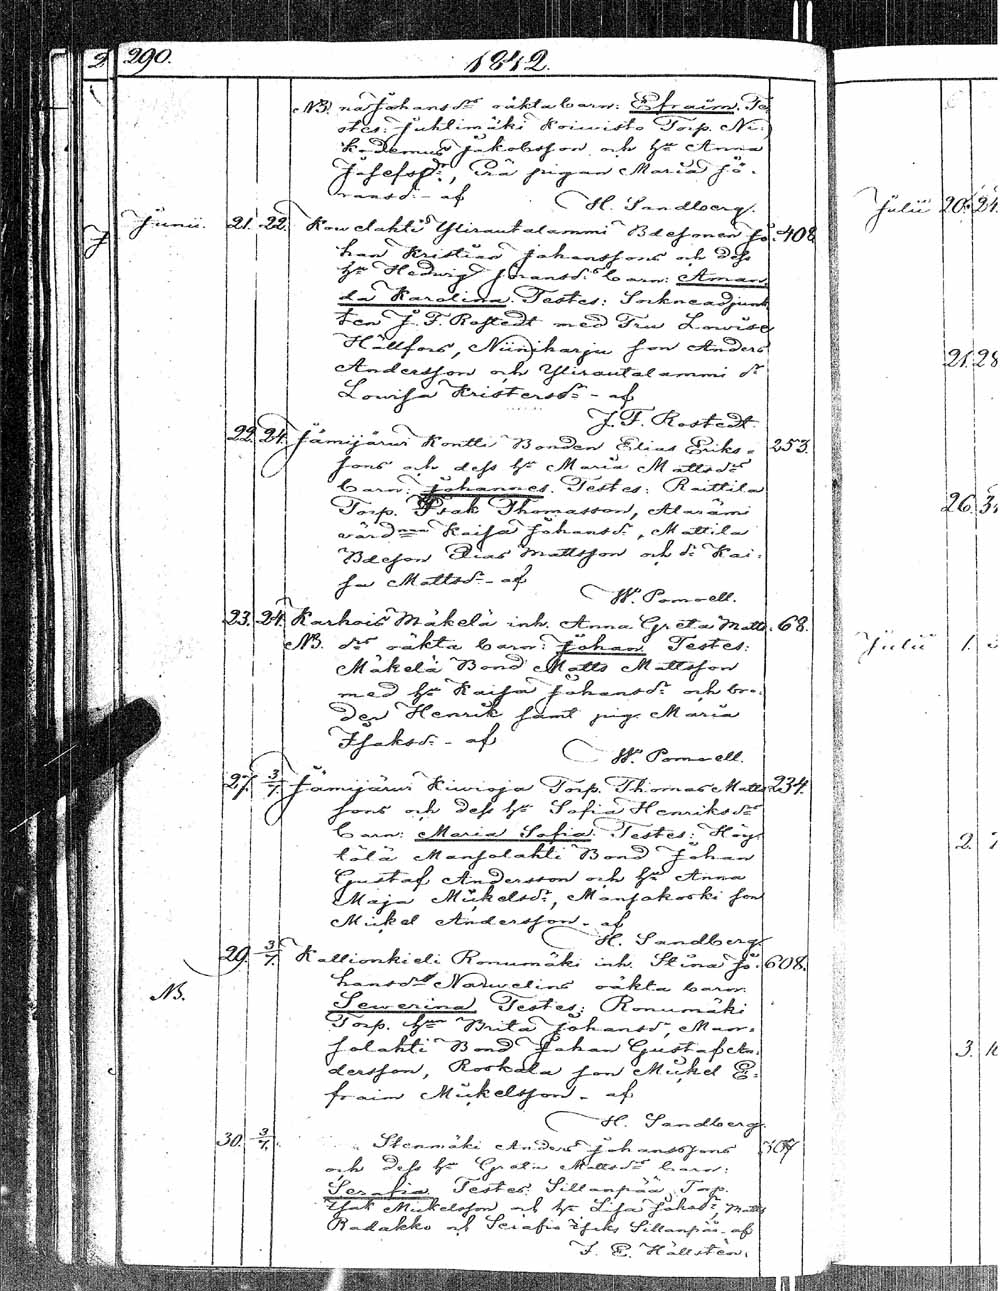 290.
1842.
NB. na Johansdr oäkta barn: Efraim. Te-
stes: Juhtimäki Koiwisto Torp. Ni-
kodemus Jakobsson och hu Anna
Josefsdr, Erä pigan Maria Jö-
ransdr - af
H. Sandberg.
Junii. 21. 22. Kowelahti Ylirautalammi Bdesonen Jo- 408
han Kristian Johanssons och dess
hu Hedwig Jöransdr barn: Aman-
da Karolina. Testes: Sockneadjunk
ten J. F. Rostedt med Fru Lowise
Hällfors, Niiniharju son Anders
Andersson och Ylirautalammi dr
Lowisa Kristersdr - af
J. F. Rostedt.
22. 24. Jämijärwi Kontti Bonden Elias Eriks- 253.
sons och dess hu Maria Mattsdrs
barn: Johannes. Testes: Raittila
Torp. Isak Thomasson, Alarämi
värdinna Kaisa Johansdr, Mattila
Bdeson Elias Mattsson och dr Kai-
sa Mattsdr - af
W. Pomoell.
23. 24. Karhois Mäkelä inh. Anna Greta Matts- 68.
NB. drs oäkta barn: Johan. Testes:
Mäkelä Bond Matts Mattsson
med hu Kaisa Johansdr och bro-
der Henrik samt pig. Maria
Isaksdr - af
W. Pomoell.
27. 3/7. Jämijärwi Kiwioja Torp. Thomas Matts- 234.
sons och dess hu Sofia Henriksdrs
barn: Maria Sofia. Testes: Höy-
tölä Mansolahti Bond Johan
Gustaf Andersson och hu Anna
Maja Mickelsdr, Mansakoski son
Mickel Andersson - af
H. Sandberg.
29. 3/7. Kallionkieli Ronumäki inh. Stina Jo- 608.
NB. hansdr Naruelins oäkta barn
Sewerina. Testes: Ronumäki
Torp. hu Brita Johansdr, Man-
solahti Bond Johan Gustaf An-
dersson, Roskala son Mickel E-
fraim Mickelsson - af
H. Sandberg.
30. 3/7. Stenmäki Anders Johanssons 307
och dess hu Greta Mattsdrs barn:
Serafia. Testes: Sillanpää Torp.
Isak Mickelsson och hu Lisa Johsdr, Matts
Radakko och Serafia Isaks Sillanpää - af
F. E. Hällstén.
Julii 20. 24
21. 28
26. 3
Julii 1.
2.
3.